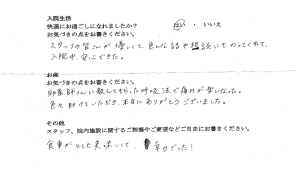 入院生活
快適にお過ごしになれましたか？ はい ・ いいえ
お気づきの点をお書きください。
スタッフの皆さんが優しくて、色んな話や相談にものってくれて、
入院中、安心できた。
お産
お気づきの点をお書きください。
助産師さんに教えてもらった呼吸法で痛みが楽になった。
色々助けていただき、本当にありがとうございました。
その他
スタッフ、院内施設に関するご指摘やご要望などご自由にお書きください。
食事がとても美味しくて、幸せでした！